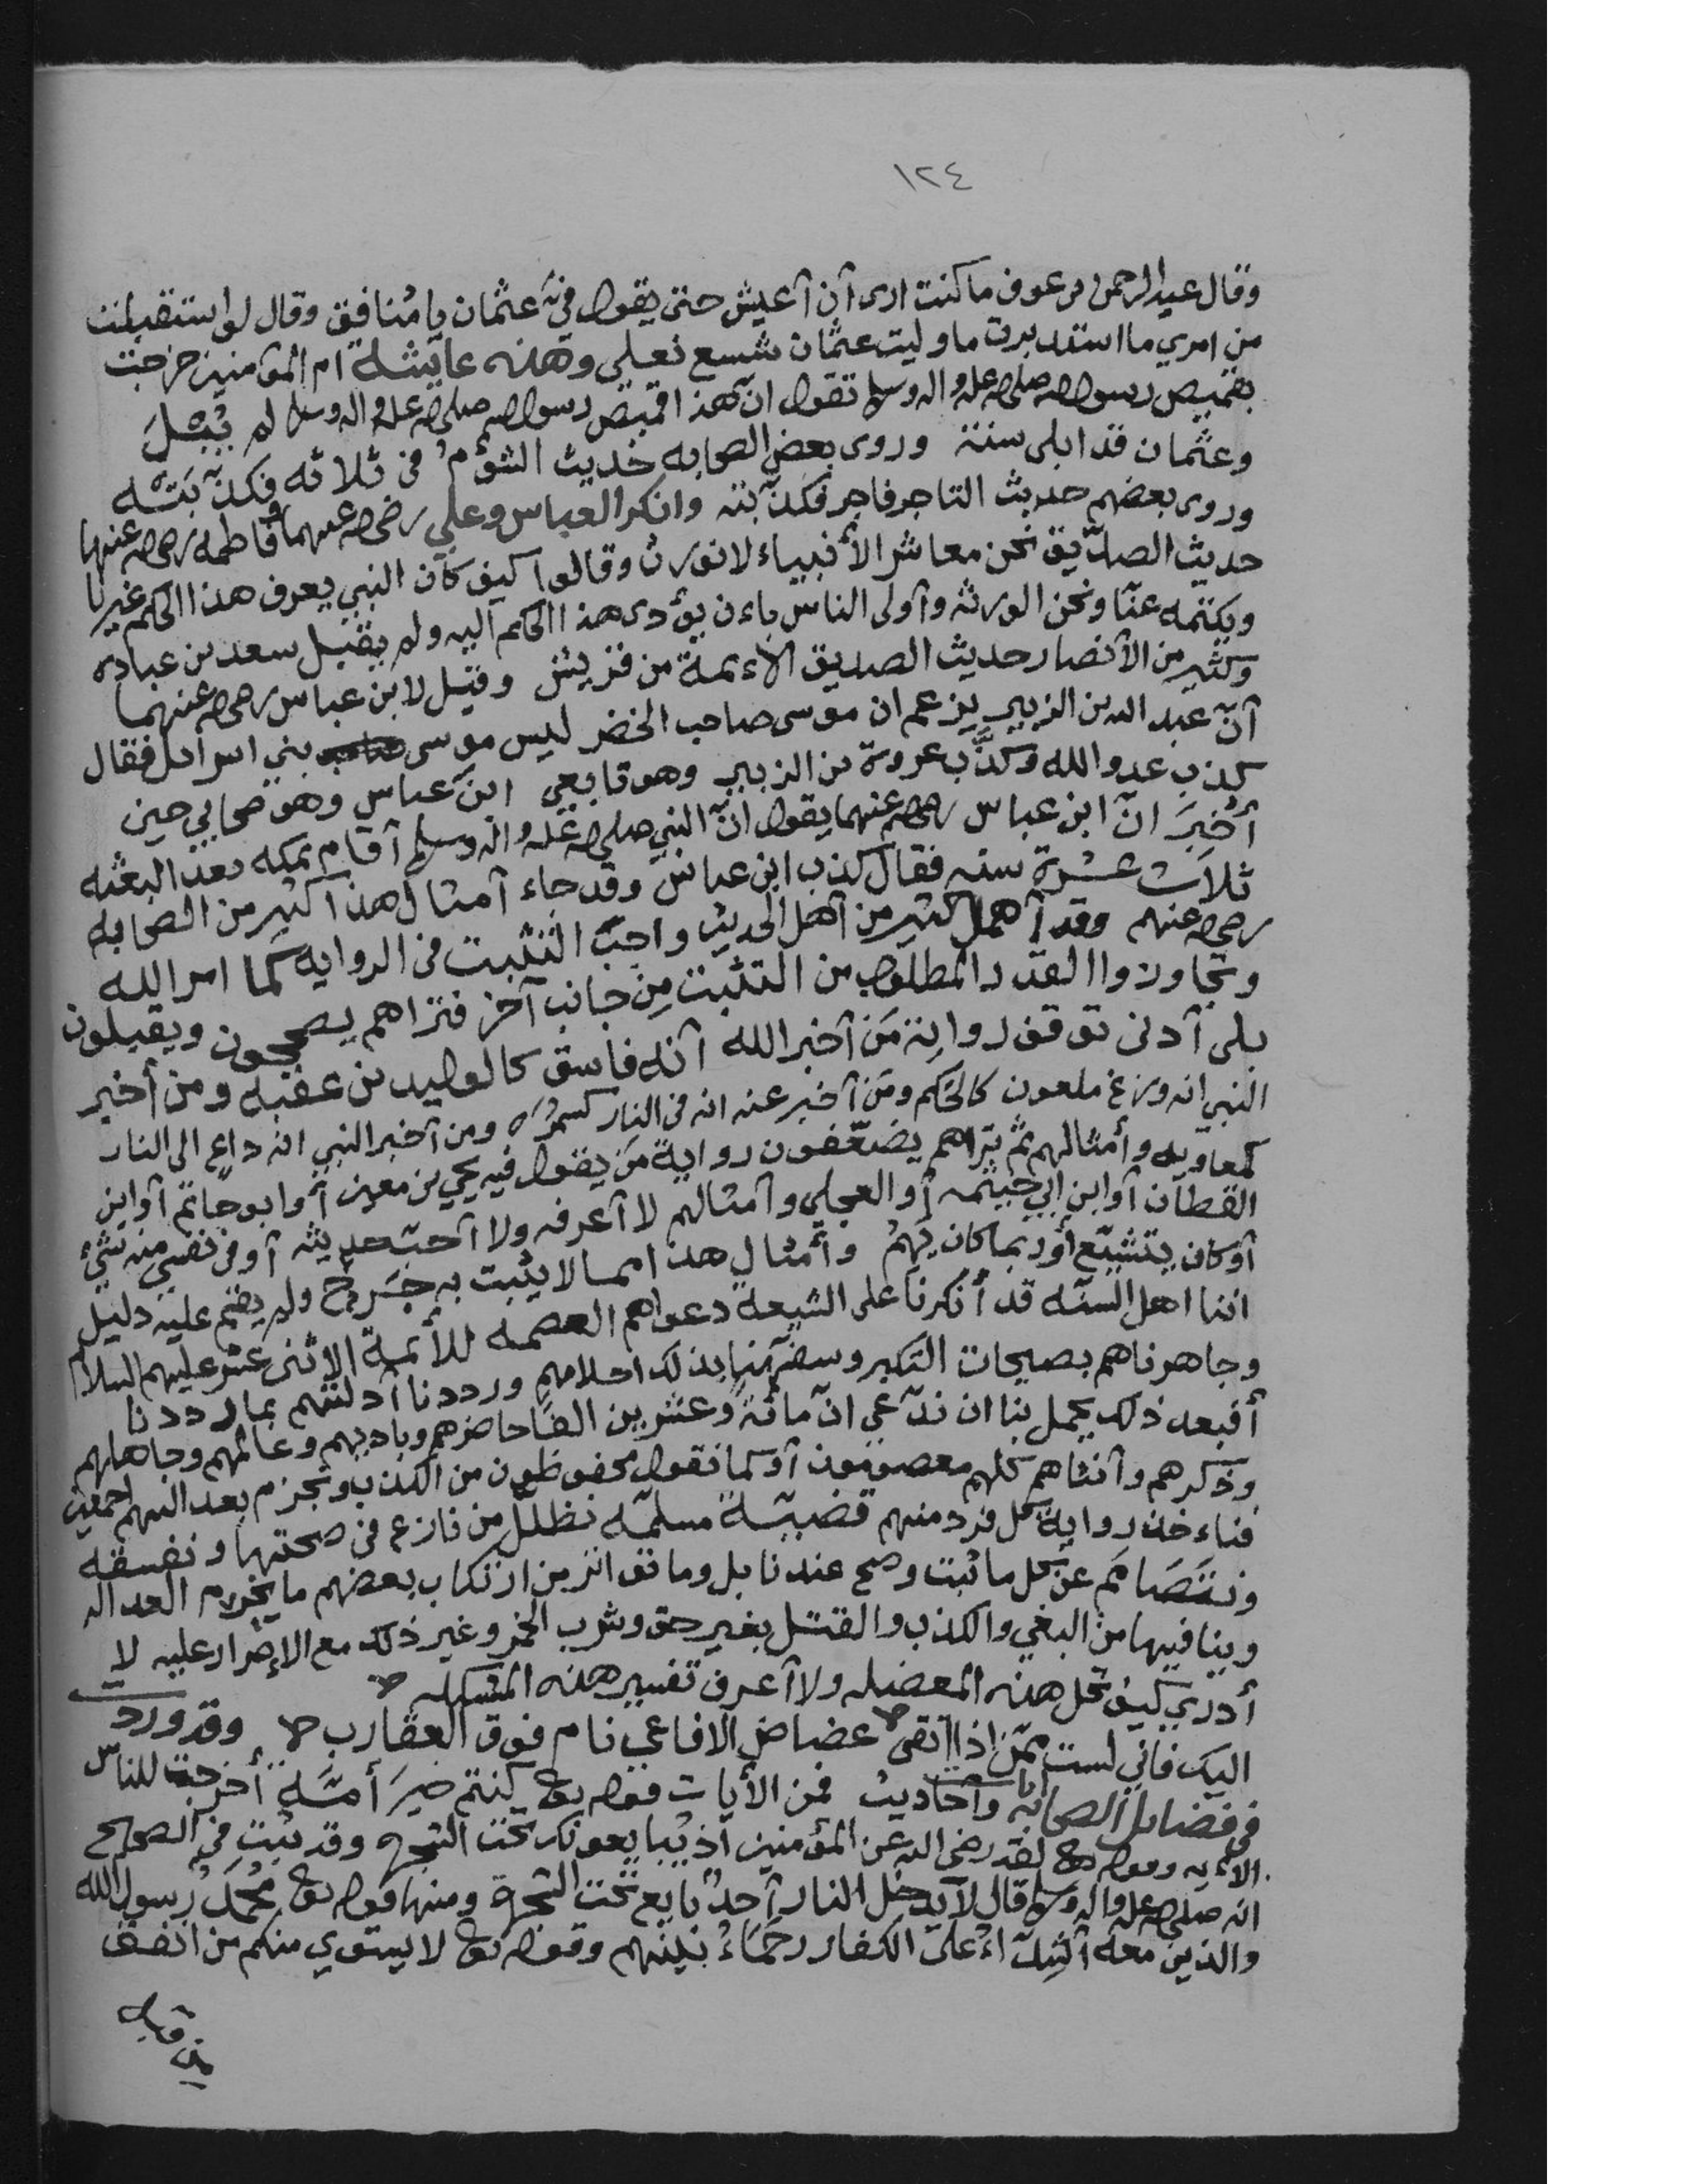 ١٢٤
وقال عبد الرحمن بن عوف ما كنت ارى أن أعيش حتى يقول فيّ عثمان يا مُنافق وقال لو استقبلت
من امري ما استدبرت ما وليت عثمان شسع نعلي وهذه عايشة ام المؤمنين خرجت
بقميص رسول الله صلى الله عليه واله وسلم تقول انّ هذا قميص رسول الله صلى الله عليه واله وسلم لم يُبْلَ
وعثمان قد ابلى سنته وروى بعض الصحابه حديث الشؤم في ثلاثه فكذّبَتْه
وروى بعضهم حديث التاجر فاجر فكذّبته وانكر العباس وعلي رضي الله عنهما وفاطمه رضي الله عنها
حديث الصدّيق نحن معاشر الأنبياء لا نورث وقالوا كيف كان النبي يعرف هذا الحكم غيرنا
ويكتمه عنّا ونحن الورثه وأولى الناس باءن يؤدى هذا الحكم اليه ولم يقبل سعد بن عباده
وكثير من الأنصار حديث الصديق الاءئمة من قريش وقيل لابن عباس رضي الله عنهما
أنّ عبد الله بن الزبير يزعم ان موسى صاحب الخضر ليس موسى بني اسرائل فقال
كذب عدو الله وكذَّب عروة بن الزبير وهو تابعي ابنَ عباس وهو صحابي حين
أُخبِرَ انّ ابن عباس رضي الله عنهما يقول انّ النبي صلى الله عليه واله وسلم أقام بمكه بعد البعثه
ثلاث عشرة سنه فقال كذب ابن عباس وقد جاء أمثال هذا كثير من الصحابه
رضي الله عنهم وقد أهمل كثير من أهل الحديث واجبَ التثبت في الروايه كما امر الله
وتجاوزوا القدر المطلوب من التثبت مِن جانب آخر فتراهم يصححون ويقبلون
بلى أدنى توقف رواية مَن أخبر الله أنّه فاسق كالوليد بن عقبه ومن أخبر
النبي انه وزغ ملعون كالحَكم ومَن أخبر عنه انه في النار كسمُرَه ومن أخبر النبي انه داعٍ الى النار
كمعاويه وأمثالهم ثمّ تراهم يضعّفون روايةَ مَن يقول فيه يحيى بن معين أو ابو حاتم أو ابن
القطان أو ابن ابي خيثمه أو العجلي وأمثالهم لا أعرفه ولا أحبّ حديثه أو في نفسي منه شيءٌ
أو كان يتشيّع أو ربما كان يَهِمُ وأمثال هذا مما لا يثبت به جَرحٌ ولم يقم عليه دليل
اننا اهل السنّه قد أنكرنا على الشيعه دعواهم العصمه للأئمة الاثنى عشر عليهم السلام
وجاهرناهم بصيحات النكير وسفّهنا بذلك احلامهم ورددنا أدلتهم بما رددنا
أفبعد ذلك يجمل بنا ان ندّعي انّ مائة وعشرين الفًا حاضرهم وباديهم وعالمهم وجاهلهم
وذكرهم وأنثاهم كلهم معصومون أو كما نقول محفوظون من الكذب ونجزم بعدالتهم اجمعين
فناءخذ روايةَ كل فرد منهم قضيّة مسلّمه نظلّل من نازع في صحتها ونفسقه
ونتصَامَم عن كل ما ثبت وصح عندنا بل وما تواتر من ارتكاب بعضهم ما يخرم العداله
وينافيها من البغي والكذب والقتل بغير حق وشرب الخمر وغير ذلك مع الإصرار عليه لا
أدري كيف تحل هذه المعضله ولا أعرف تفسير هذه المشكله
اليك فاني لست ممّن إذا اتقى عضاض الافاعي نام فوق العقارب وقد ورد
في فضايل الصحابه آيات وأحاديث فمن الأيات قوله تع كنتم خيرَ أمّة أخرجت للناس
الاءيه وقوله تع لقد رضي الله عن المؤمنين اذ يبايعونك تحت الشجره وقد ثبت في الصحيح
انه صلى الله عليه واله وسلم قال لا يدخل النار أحدٌ بايع تحت الشجرة ومنها قوله تع محمدٌ رسول الله
والذين معه أشدّاءُ على الكفار رحماءُ بينهم وقوله تع لا يستوي منكم من انفق
من قبل